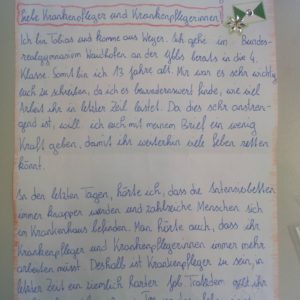 Liebe Krankenpfleger und Krankenpflegerinnen!
Ich bin Tobias und komme aus Weyer. Ich gehe im Bundes-
realgymnasium Waidhofen an der Ybbs bereits in die 4.
Klasse. Somit bin ich 13 Jahre alt. Mir war es sehr wichtig
euch zu schreiben, da ich es bewundernswert finde, wie viel
Arbeit ihr in letzter Zeit leistet. Da dies sehr anstren-
gend ist, will ich euch mit meinem Brief ein wenig
Kraft geben, damit ihr weiterhin viele Leben retten
könnt.
In den letzten Tagen, hörte ich, dass die Intensivbetten
immer knapper werden und zahlreiche Menschen sich
im Krankenhaus befinden. Man hörte auch, dass ihr
Krankenpfleger und Krankenpflegerinnen immer mehr
arbeiten müsst. Deshalb ist Krankenpfleger zu sein, in
letzter Zeit ein ziemlich harter Job. Trotzdem gebt ihr